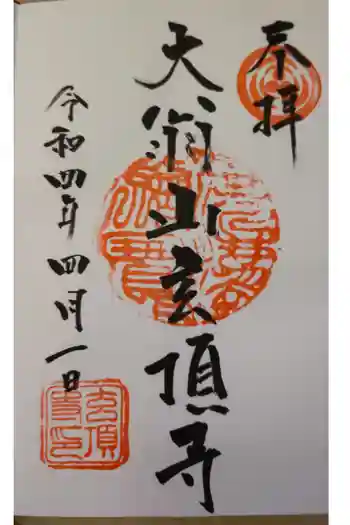 奉拝
天翁山玄頂寺
令和四年四月一日
玄頂
寺印